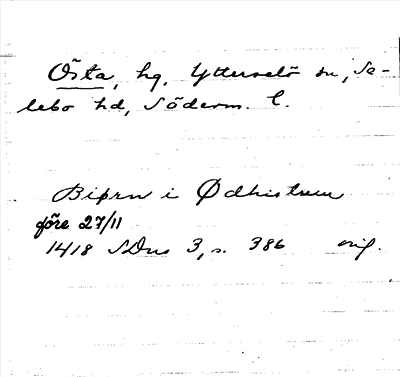 Östa, hg, Ytterselö sn, Se-
lebo hd, Söderm. l.
Biørn i Ødhistum
före 27/11
1418 SDns 3, s. 386 orig.